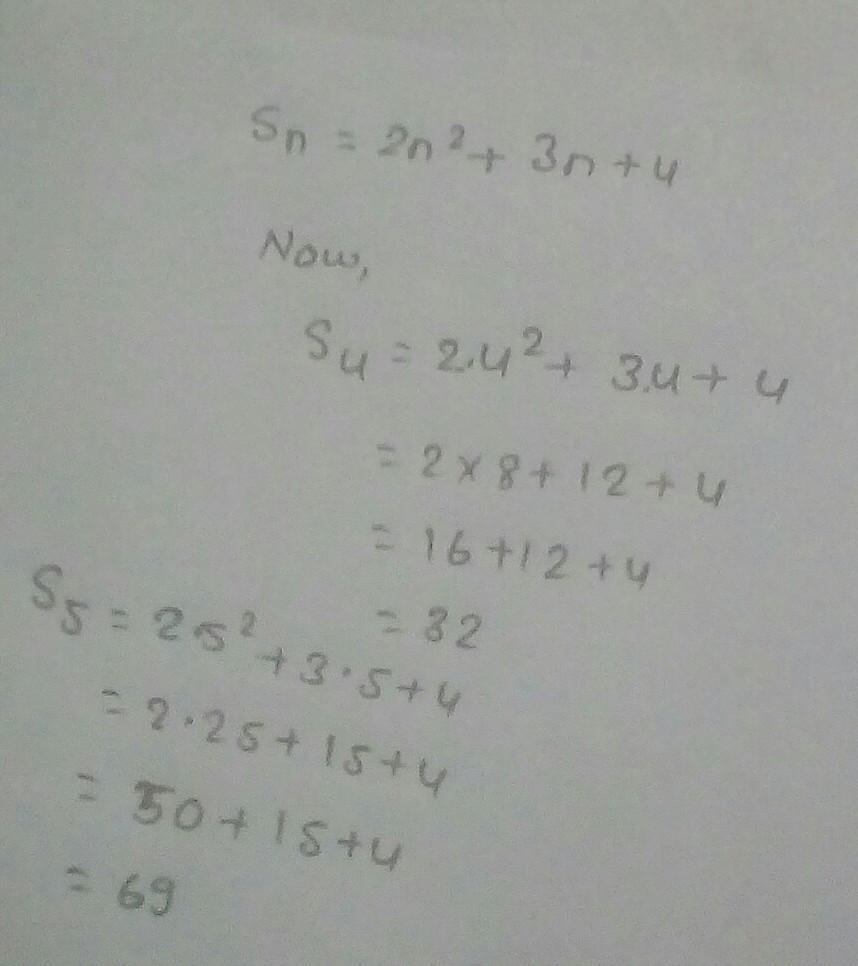 Sn = 2n² + 3n + 4
Now,
S4 = 2.4² + 3.4 + 4
= 2 × 8 + 12 + 4
= 16 + 12 + 4
= 32
S5 = 25² + 3·5 + 4
= 2·25 + 15 + 4
= 50 + 15 + 4
= 69